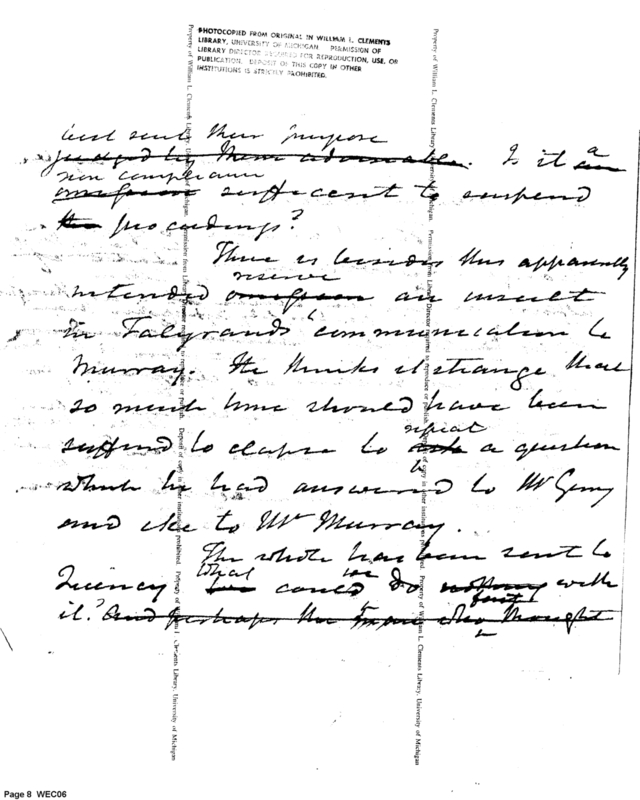 PHOTOCOPIED FROM ORIGINAL IN WILLIAM L. CLEMENTS
LIBRARY, UNIVERSITY OF MICHIGAN PERMISSION OF
LIBRARY DIRECTOR REQUIRED FOR REPRODUCTION, USE, OR
PUBLICATION. DEPOSIT OF THIS COPY IN OTHER
INSTITUTIONS IS STRICTLY PROHIBITED.
best their purpose
judged by them adomable. Is it a
non compliance
omission sufficent to suspend
the proceedings?
There is besides this apparently
reserve
intended omission an insult
in Talyrands communication to
Murray. He thinks it strange that
so much time should have been
suffered to elapse to repeat
ask a question
which he had answered to Mr Gerry
and eke to Mr Murray.
The whole has been sent to
Quincy What we could do nothing with
it? And perhaps the man who thought
Property of William L. Clements Library, University of Michigan. Permission from Library Director required to reproduce or publish. Deposit of copy in other institutions prohibited. Property of William L. Clements Library, University of Michigan
Property of William L. Clements Library, University of Michigan. Permission from Library Director required to reproduce or publish. Deposit of copy in other institutions prohibited. Property of William L. Clements Library, University of Michigan
Page 8 WEC06